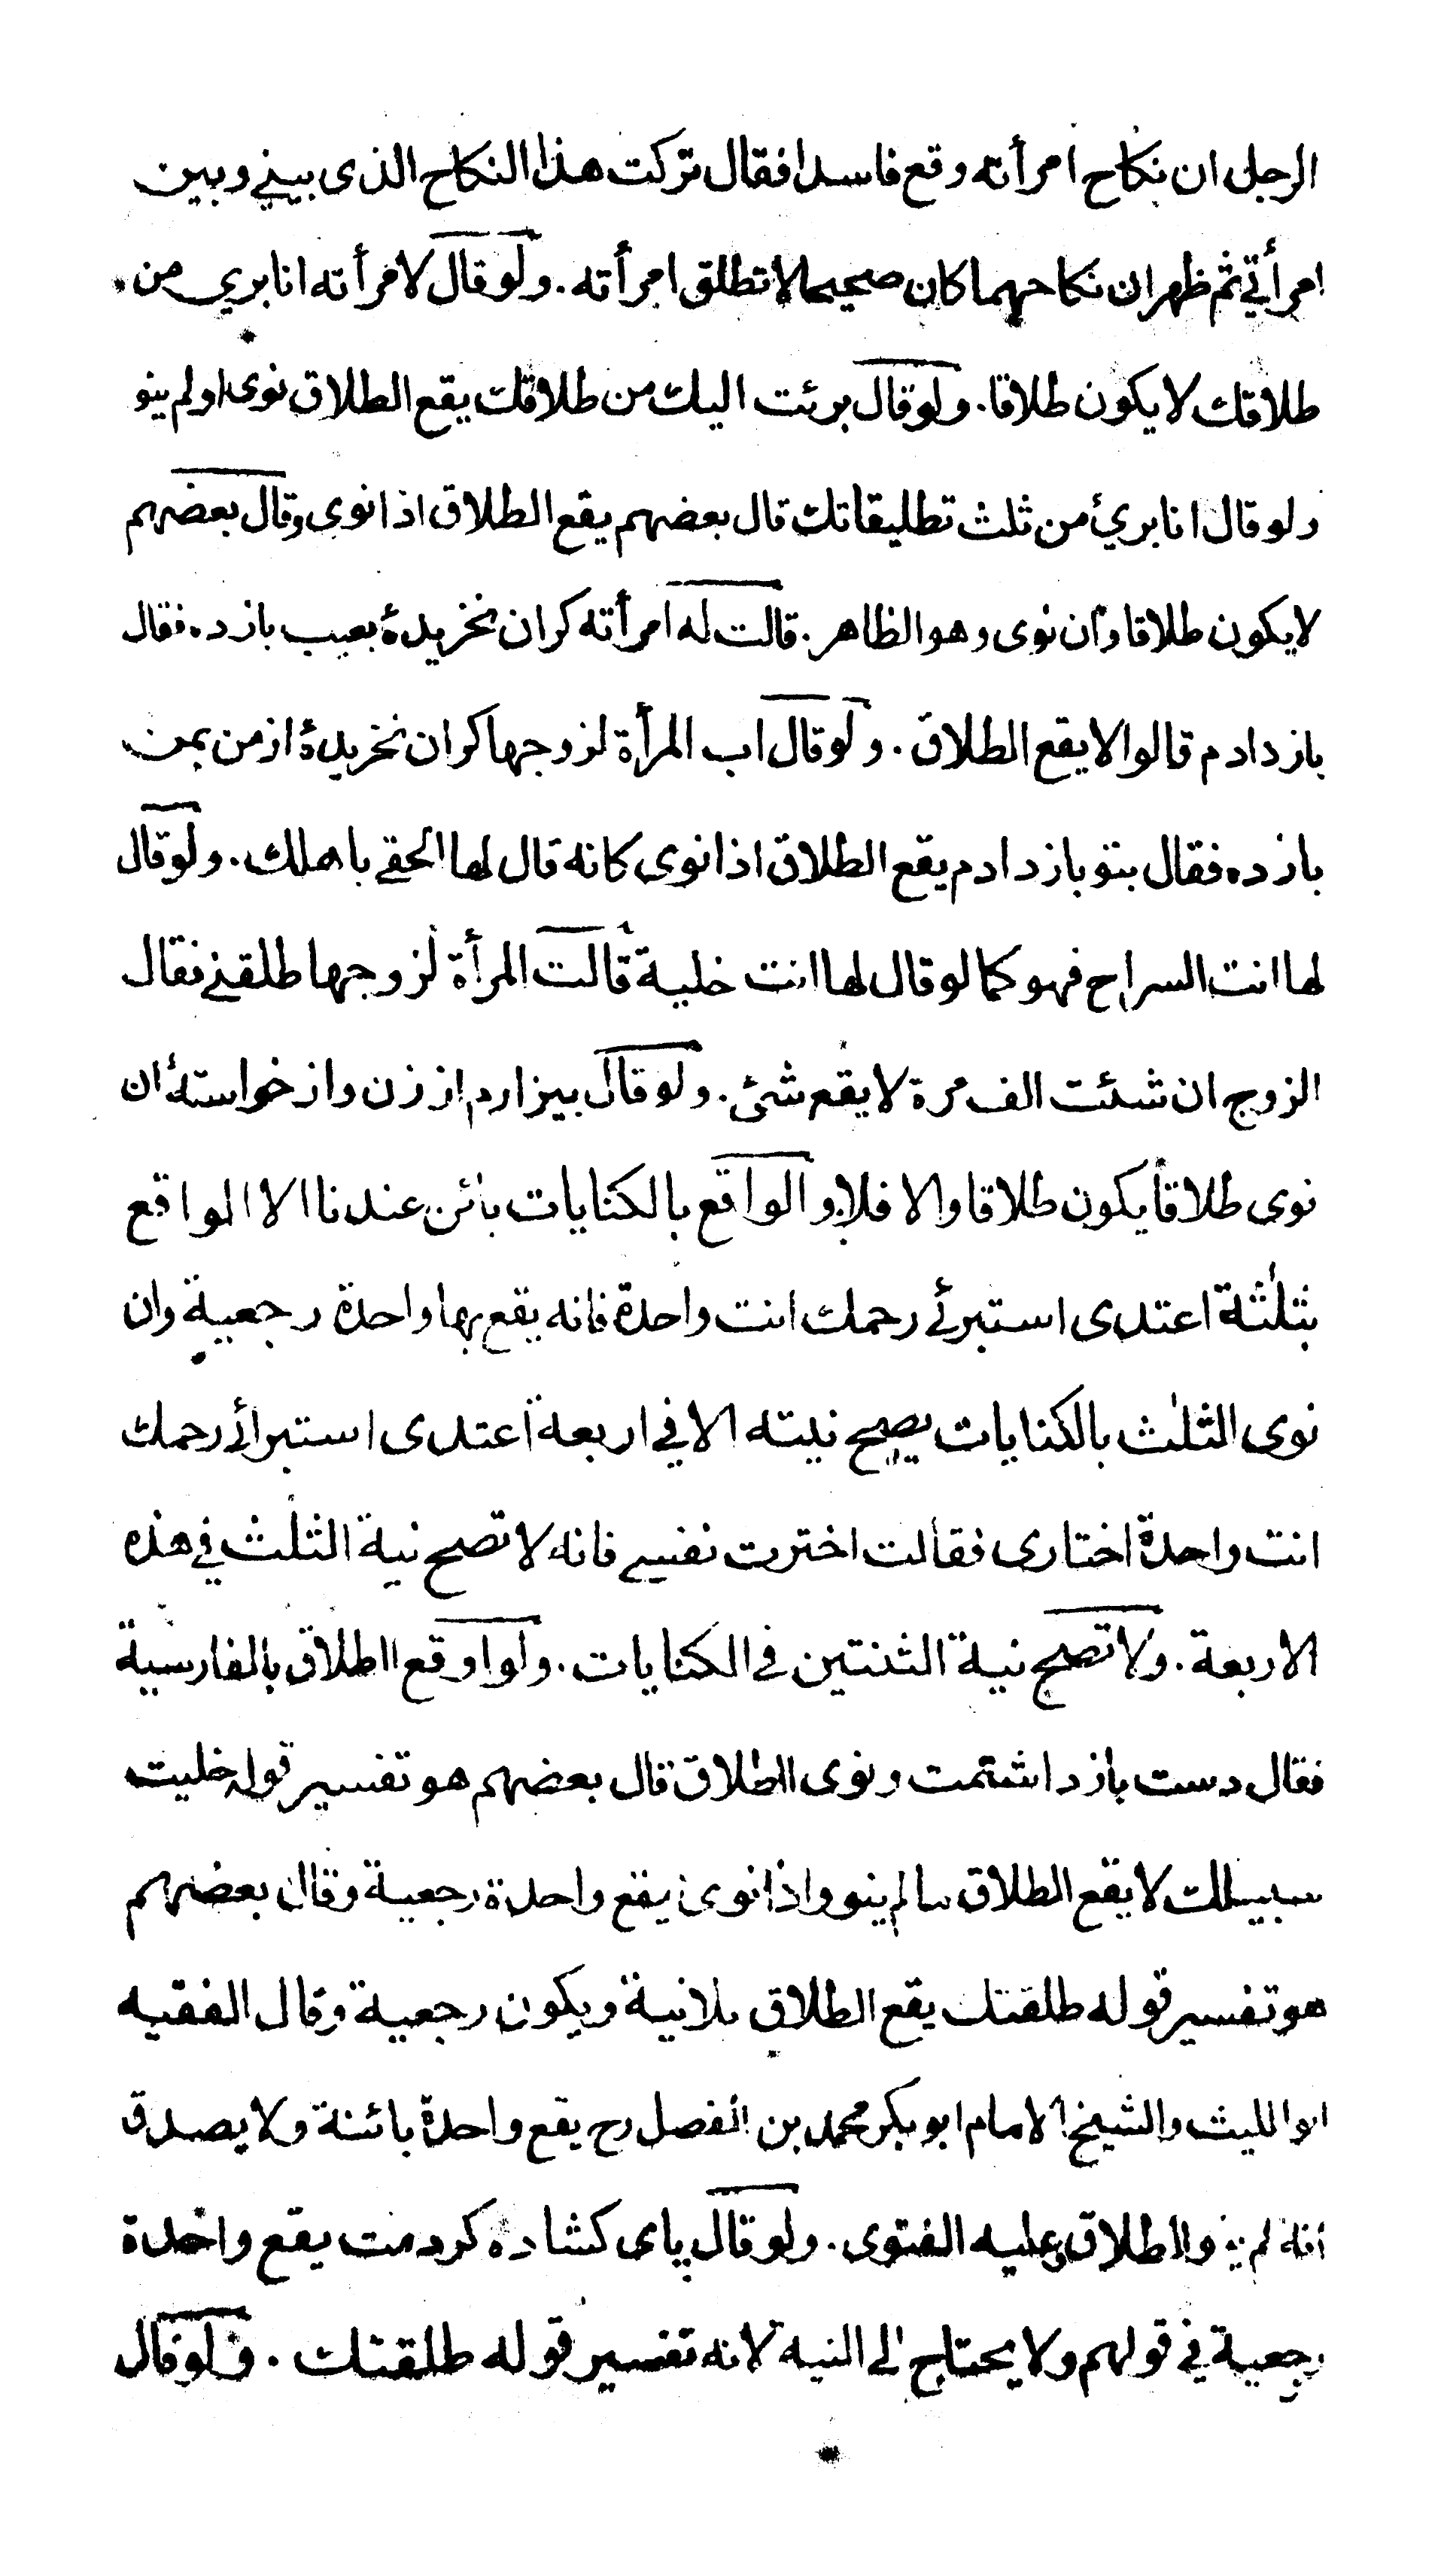 الرجل ان نكاح امرأته وقع فاسدا فقال تركت هذا النكاح الذى بيني وبين
امرأتي ثم ظهر ان نكاحهما كان صحيحا لا تطلق امرأته . ولو قال لامرأته انا بري من
طلاقك لا يكون طلاقا . ولو قال برئت اليك من طلاقك يقع الطلاق نوى اولم ينو
ولو قال انا برئ من ثلث تطليقاتك قال بعضهم يقع الطلاق اذا نوى وقال بعضهم
لا يكون طلاقا وان نوى وهو الظاهر . قالت له امرأته كران نخريدۀ بعيب بازده فقال
باز دادم قالوا لا يقع الطلاق . ولو قال اب المرأة لزوجها كران نخريدۀ از من بمن
بازده فقال بتو باز دادم يقع الطلاق اذا نوى كانه قال لها الحقي باهلك . ولو قال
لها انت السراح فهو كما لو قال لها انت خلية قالت المرأة لزوجها طلقني فقال
الزوج ان شئت الف مرة لا يقع شئ . ولو قال بيزارم از زن واز خواستۀ ان
نوى طلاقا يكون طلاقا والا فلا والواقع بالكنايات بائن عندنا الا الواقع
بثلثة اعتدى استبرئي رحمك انت واحدة فانه يقع بها واحدة رجعية وان
نوى الثلث بالكنايات يصح نيته الا في اربعة اعتدى استبرائي رحمك
انت واحدة اختارى فقالت اخترت نفسي فانه لا تصح نية الثلث في هذه
الاربعة . ولا تصح نية الثنتين في الكنايات . ولو اوقع الطلاق بالفارسية
فقال دست باز داشتمت ونوى الطلاق قال بعضهم هو تفسير قوله خليت
سبيلك لا يقع الطلاق مالم ينو واذا نوى يقع واحدة رجعية وقال بعضهم
هو تفسير قوله طلقتك يقع الطلاق بلانية ويكون رجعية وقال الفقيه
ابوالليث والشيخ الامام ابو بكر محمد بن الفضل رح يقع واحدة بائنة ولا يصدق
انه لم ينو الطلاق وعليه الفتوى . ولو قال پاى كشاده كردمت يقع واحدة
رجعية في قولهم ولا يحتاج الى النية لانه تفسير قوله طلقتك . ولو قال